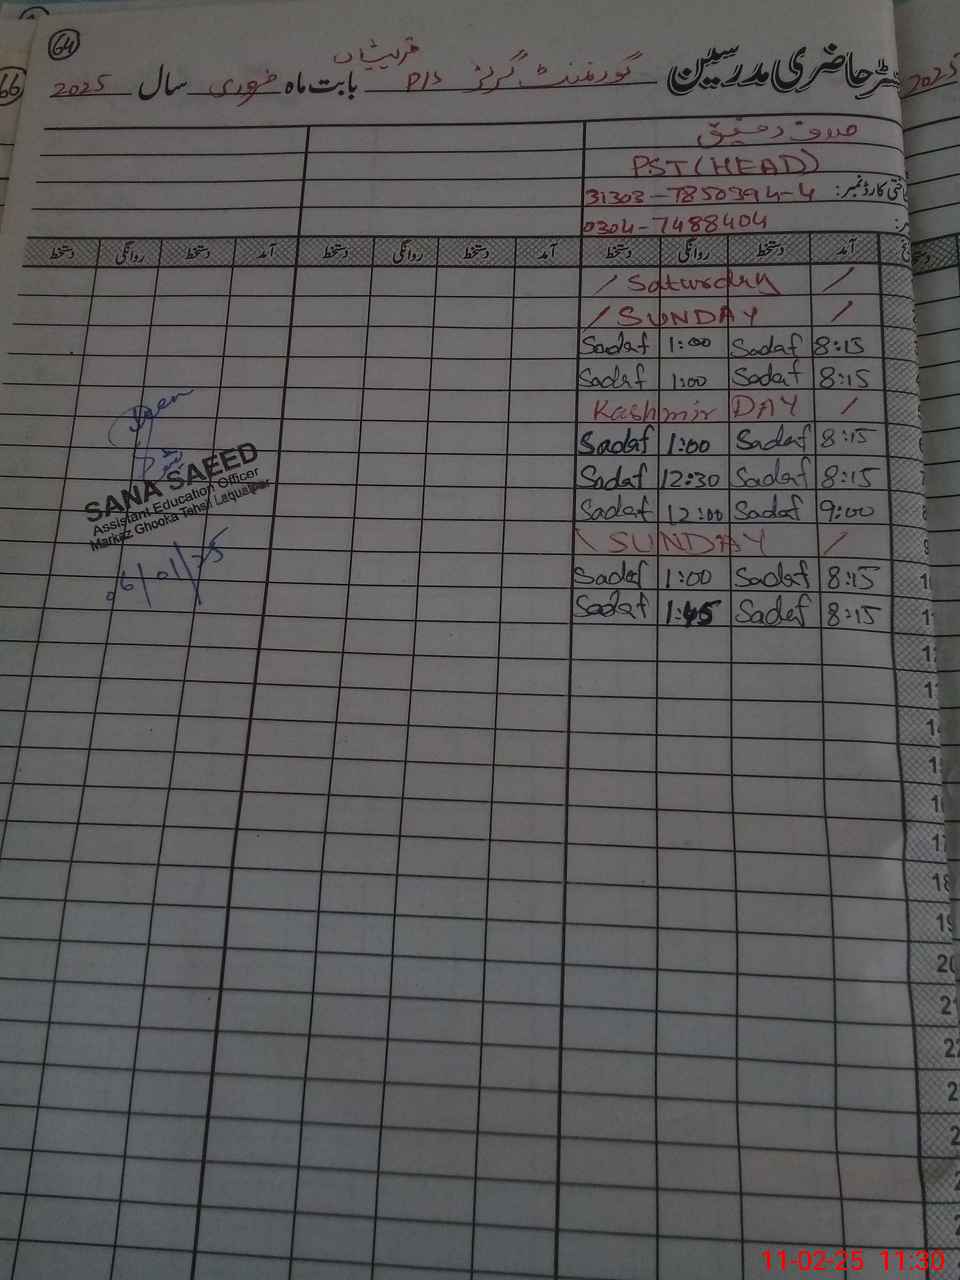 64
66
قریشیاں
رجسٹر حاضری مدرسین گورنمنٹ گرلز P/S بابت ماہ فروری سال 2025
2025
صدف رفیق
PST (HEAD)
کارڈ نمبر: 31303-7850394-4
0304-7488404
آمد دستخط روانگی دستخط آمد دستخط روانگی دستخط آمد دستخط روانگی دستخط
/ Saturday /
/ SUNDAY /
Sadaf 1:00 Sadaf 8:15
Sadaf 1:00 Sadaf 8:15
Kashmir DAY /
Sadaf 1:00 Sadaf 8:15
Sadaf 12:30 Sadaf 8:15
Sadaf 12:00 Sadaf 9:00
\ SUNDAY / 9
Sadaf 1:00 Sadaf 8:15 10
Sadaf 1:45 Sadaf 8:15 11
SANA SAEED
Assistant Education Officer
Markaz Ghooka Tehsil Liaquatpur
06/01/25
12
13
14
15
16
17
18
19
20
21
22
2
2
2
2
11-02-25 11:30